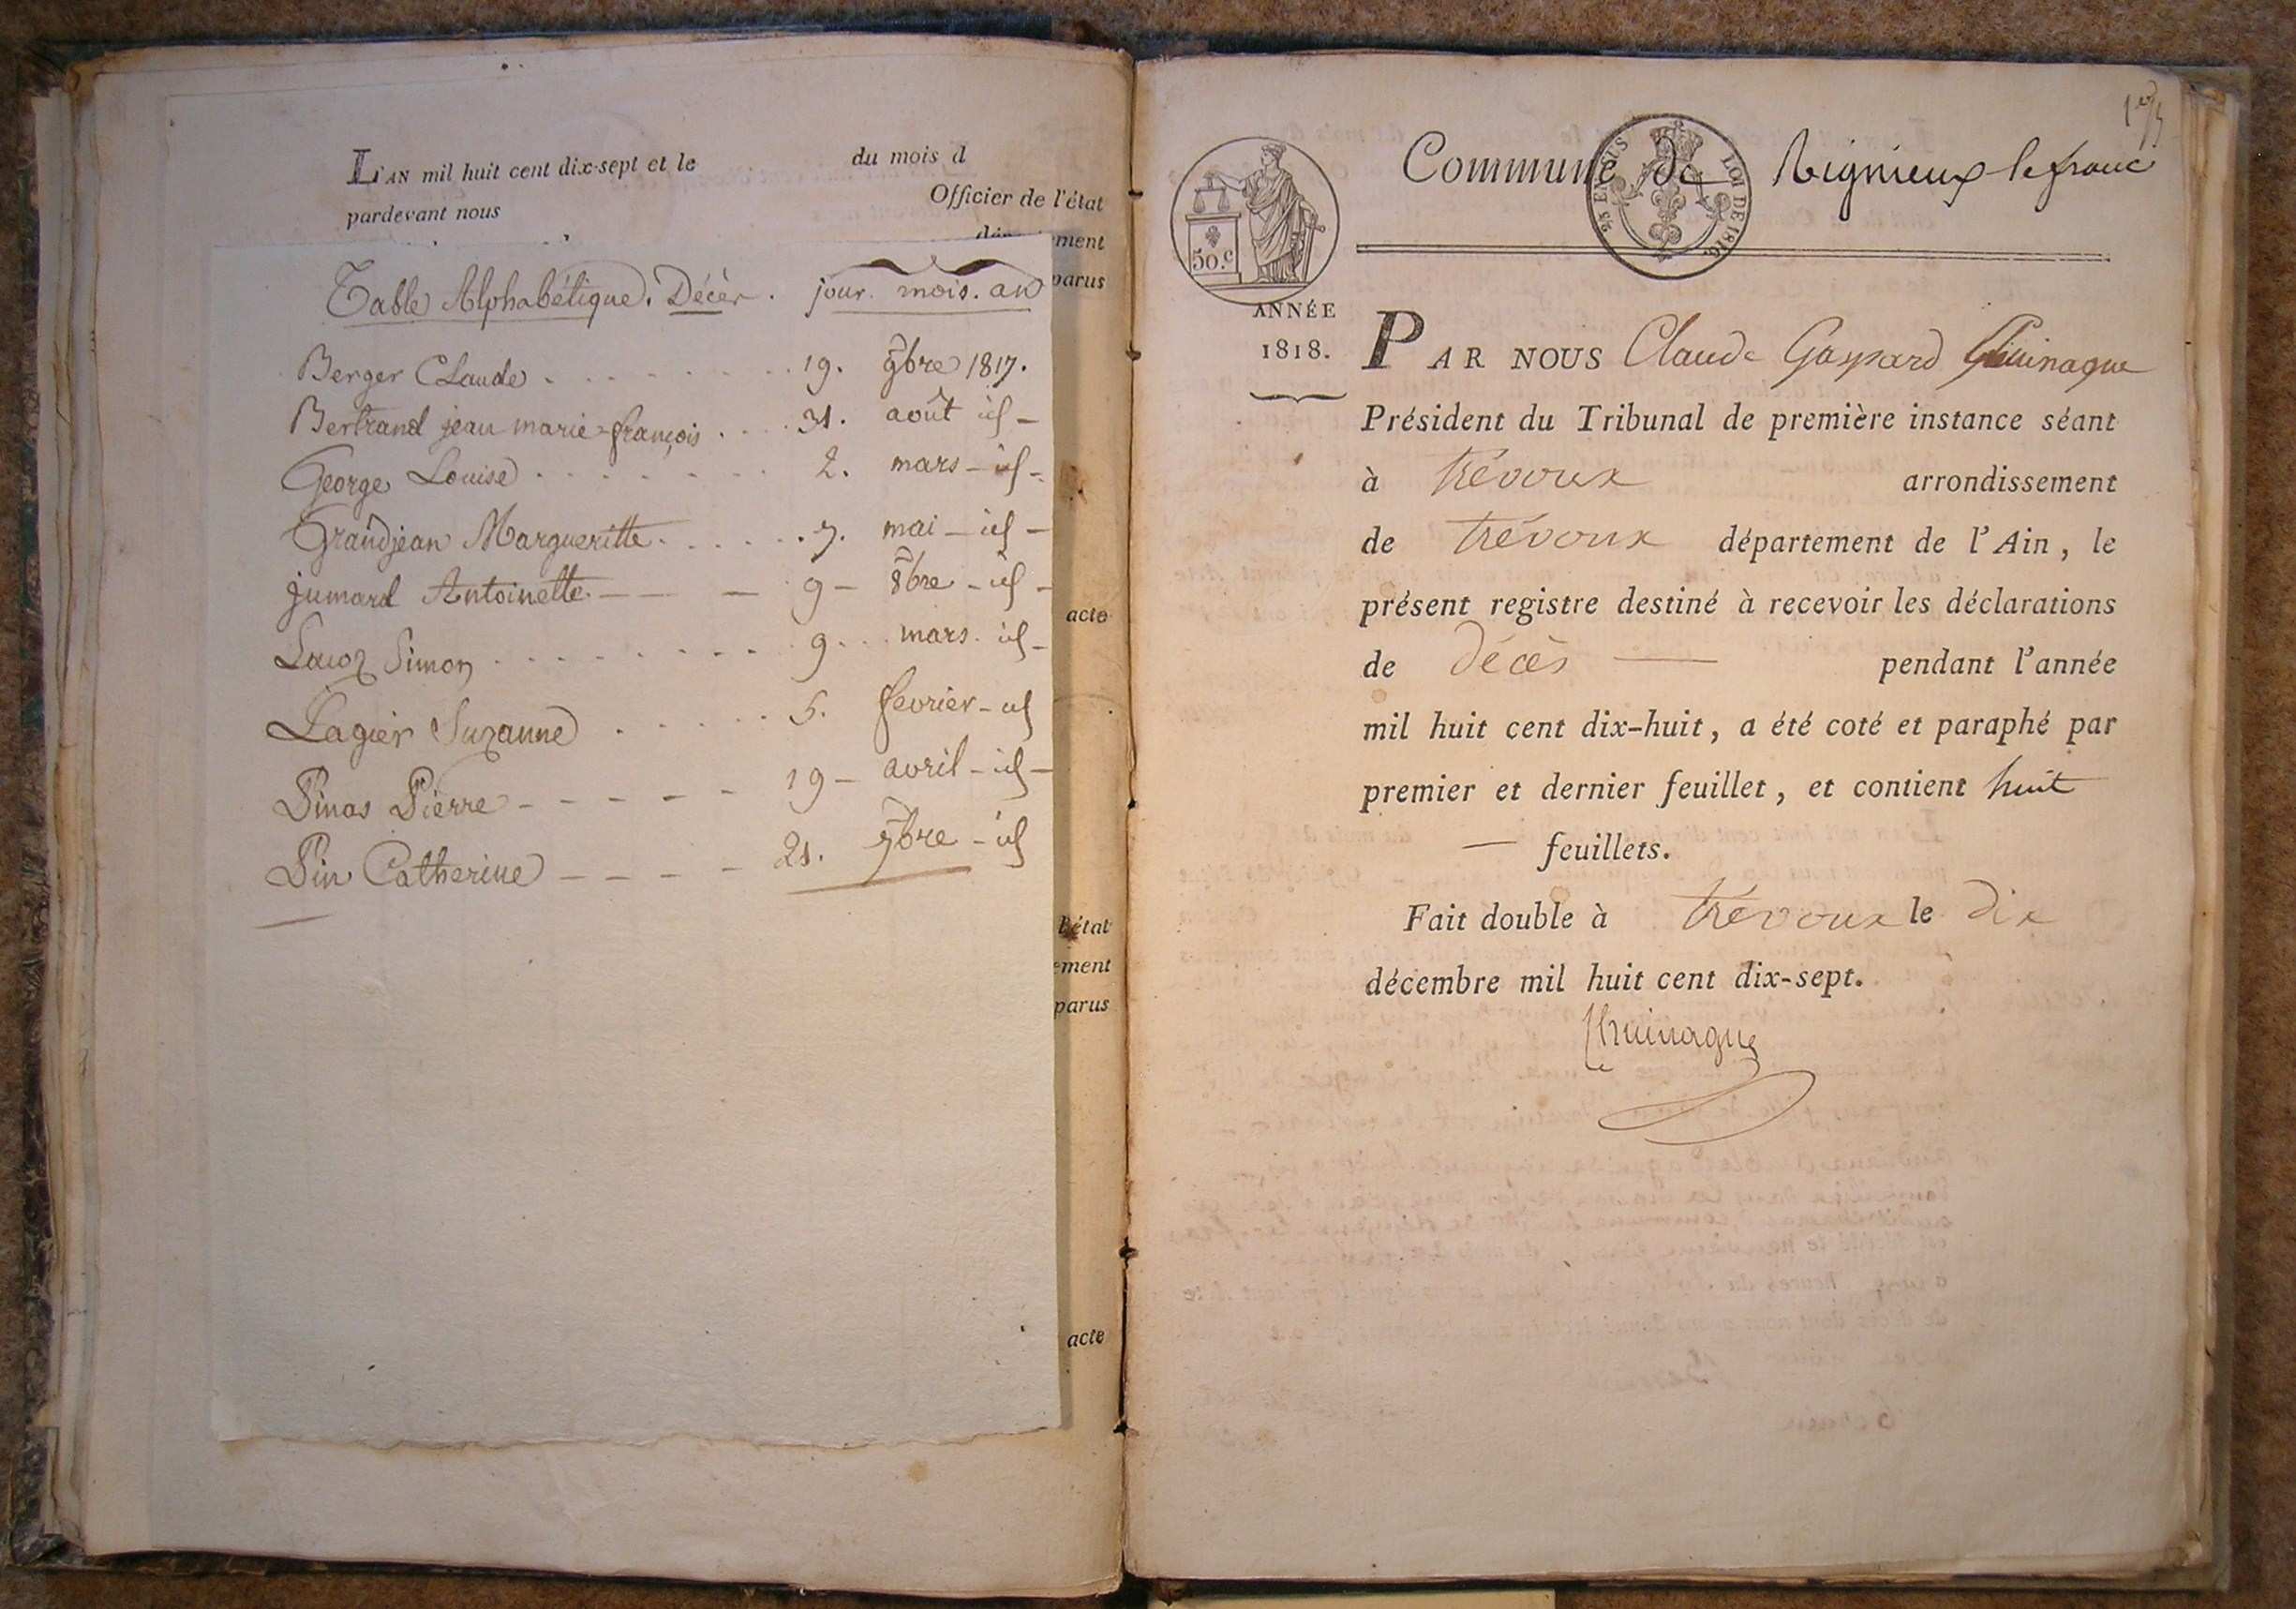 L'AN mil huit cent dix-sept et le du mois d
pardevant nous Officier de l'état
ment
parus
Table Alphabétique. Décès. jour. mois. an
Berger Claude 19. 9bre 1817.
Bertrand jean marie françois 31. août id
George Louise 2. mars id
Grandjean Margueritte 7. mai id
jumard Antoinette 9 8bre id
Simon 9 mars id
Lagier Suzanne 5. fevrier id
Pinas Pierre 19 avril id
Pin Catherine 21. 9bre id
acte
l'état
ement
parus
acte
1er
Commune de Rignieux le franc
LOI DE 1816.
50.c
ANNÉE
1818.
PAR NOUS Claude Gaspard
Président du Tribunal de première instance séant
à trévoux arrondissement
de trévoux département de l'Ain, le
présent registre destiné à recevoir les déclarations
de décès pendant l'année
mil huit cent dix-huit, a été coté et paraphé par
premier et dernier feuillet, et contient huit
feuillets.
Fait double à trévoux le dix
décembre mil huit cent dix-sept.